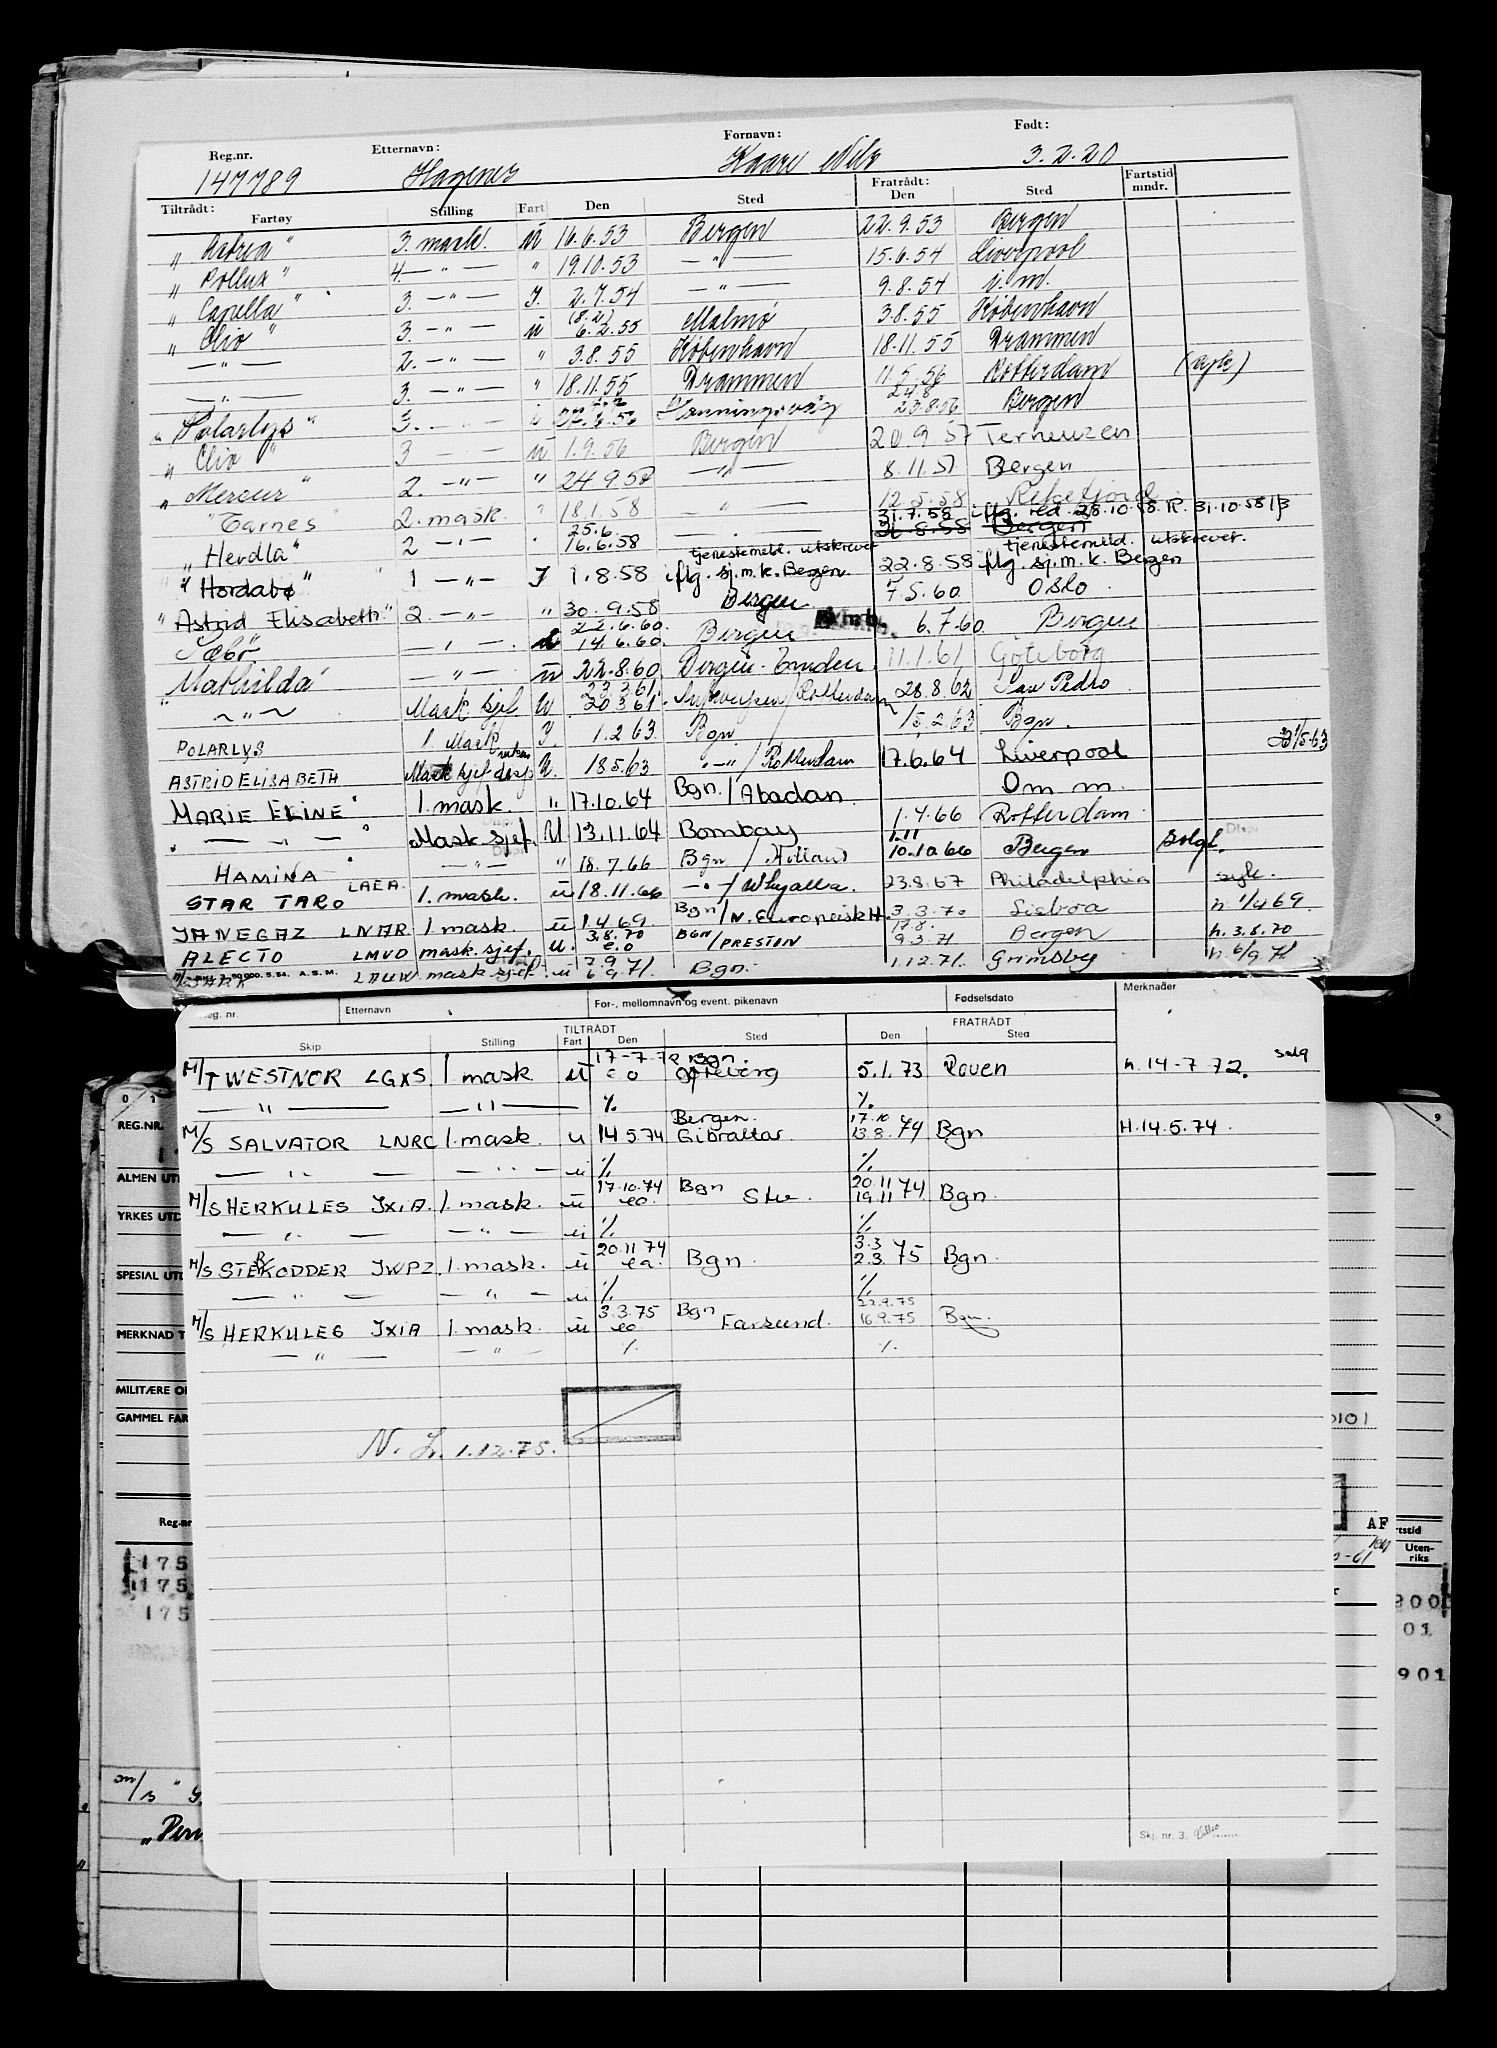 Reg.nr. Etternavn: Fornavn: Født:
147789 Hagenes Kaare Nils 3.2.20
Tiltrådt: Fratrådt: Fartstid mndr.
Fartøy Stilling Fart Den Sted Den Sted
" Astrea" 3. mask. u 16.6.53 Bergen 22.9.53 Bergen
" Pollux" 4. — " — " 19.10.53 — " — 15.6.54 Liverpool
" Capella" 3. — " — I. 2.7.54 — " — 9.8.54 i.m.
" Clio" 3. — " — u (8.2) 6.2.55 Malmö 3.8.55 København
— " — 2. — " — " 3.8.55 København 18.11.55 Drammen
— " — 3. — " — " 18.11.55 Drammen 11.5.56 Rotterdam (syk)
" Polarlys" 3. — " — i 22.6.56 Honningsvåg 24.8 23.8.56 Bergen
" Clio" 3 — " — u 1.9.56 Bergen 20.9.57 Terneuzen
" Mercur" 2. — " — " 24.9.57 — " — 8.11.57 Bergen
"Tarnes" 2. mask. " 18.1.58 — " — 12.5.58 Rekefjord
" Herdla" 2 — " — " 25.6. 16.6.58 — " — 31.7.58 31.8.58 iflg. red. 28.10.58. R. 31.10.58 Bergen
" Hordabø" 1 — " — I 1.8.58 tjenestemeld. utskrevet iflg. sj.m.k. Bergen. 22.8.58 tjenestemeld. utskrevet. iflg. sj.m.k. Bergen
" Astrid Elisabeth" 2. — " — " 30.9.58 Bergen 7.5.60 Oslo
"Sæbø" — " — 22.6.60. 14.6.60. Bergen 6.7.60 Bergen
Mathilda — " — u 22.8.60 Bergen - Emden. 11.1.61 Göteborg
" — " — Mask. sjef U 23.3.61 20.3.61 /Rotterdam 28.8.62 San Pedro
POLARLYS 1. Mask I. 1.2.63 Bgn 15.2.63 Bgn.
ASTRID ELISABETH Mask sjef disp U. 18.5.63 " — " / Rotterdam 17.6.64 Liverpool 21/5-63
MARIE ELINE 1. mask. " 17.10.64 Bgn./Abadan. Om m.
" — " — Mask. sjef. U 13.11.64 Bombay 1.4.66 Rotterdam
HAMINA — " — " 18.7.66 Bgn / Holland 1.11 10.10.66 Bergen solgt.
STAR TARO LAEA. 1. mask. u 18.11.66 — " — / Whyalla. 23.8.67 Philadelphia syk.
JANEGAZ LNAR. 1. mask. u 1.4.69. Bgn/N. Europeisk H. 3.3.70 Lisboa h. 1/4 69
ALECTO LMVD mask. sjef. u. 3.8.70 e.o BGN /PRESTON 17.8. 9.3.71 Bergen h. 3.8.70
LAUW mask. sjef. u 7.9.71 6.9.71. Bgn. 1.12.71. Grimsby h. 6/9 71
50 000. 5. 54. A.S.M.
Reg. nr. Etternavn For-, mellomnavn og event. pikenavn Fødselsdato Merknader
TILTRÅDT FRATRÅDT
Skip Stilling Fart Den Sted Den Sted
M/T WESTNOR LGXS. 1 mask u 17-7-72 e o Bgn. Gøteborg 5.1.73 Rouen h. 14-7 72. salg
— " — — " — % %
M/S SALVATOR LNRC 1. mask. u 14.5.74 Bergen. Gibraltar. 17.10 13.8.74 Bgn H. 14.5.74.
— " — — " — u % %
M/S HERKULES JXIA. 1. mask. u 17.10.74 eo. Bgn Stv. 20.11 19.11 74 Bgn.
— " — — " — u % %
M/S STERKODDER JWPZ. 1. mask. u 20.11.74 ea. Bgn. 3.3 2.3. 75 Bgn.
— " — — " — u % %
M/S HERKULES JXIA 1. mask. u 3.3.75 eo. Bgn Farsund. 22.9.75 16.9.75 Bgn.
— " — — " — % %
N. L. 1.12.75.
Skj. nr. 3.
REG.NR.
ALMEN UT
YRKES UTD
SPECIAL UTD
MERKNAD T
MILITÆRE O
GAMMEL FAR
0101
Reg.nr
AF
rtstid
Uten-riks
175
175
175
900
01
901
m/s
"